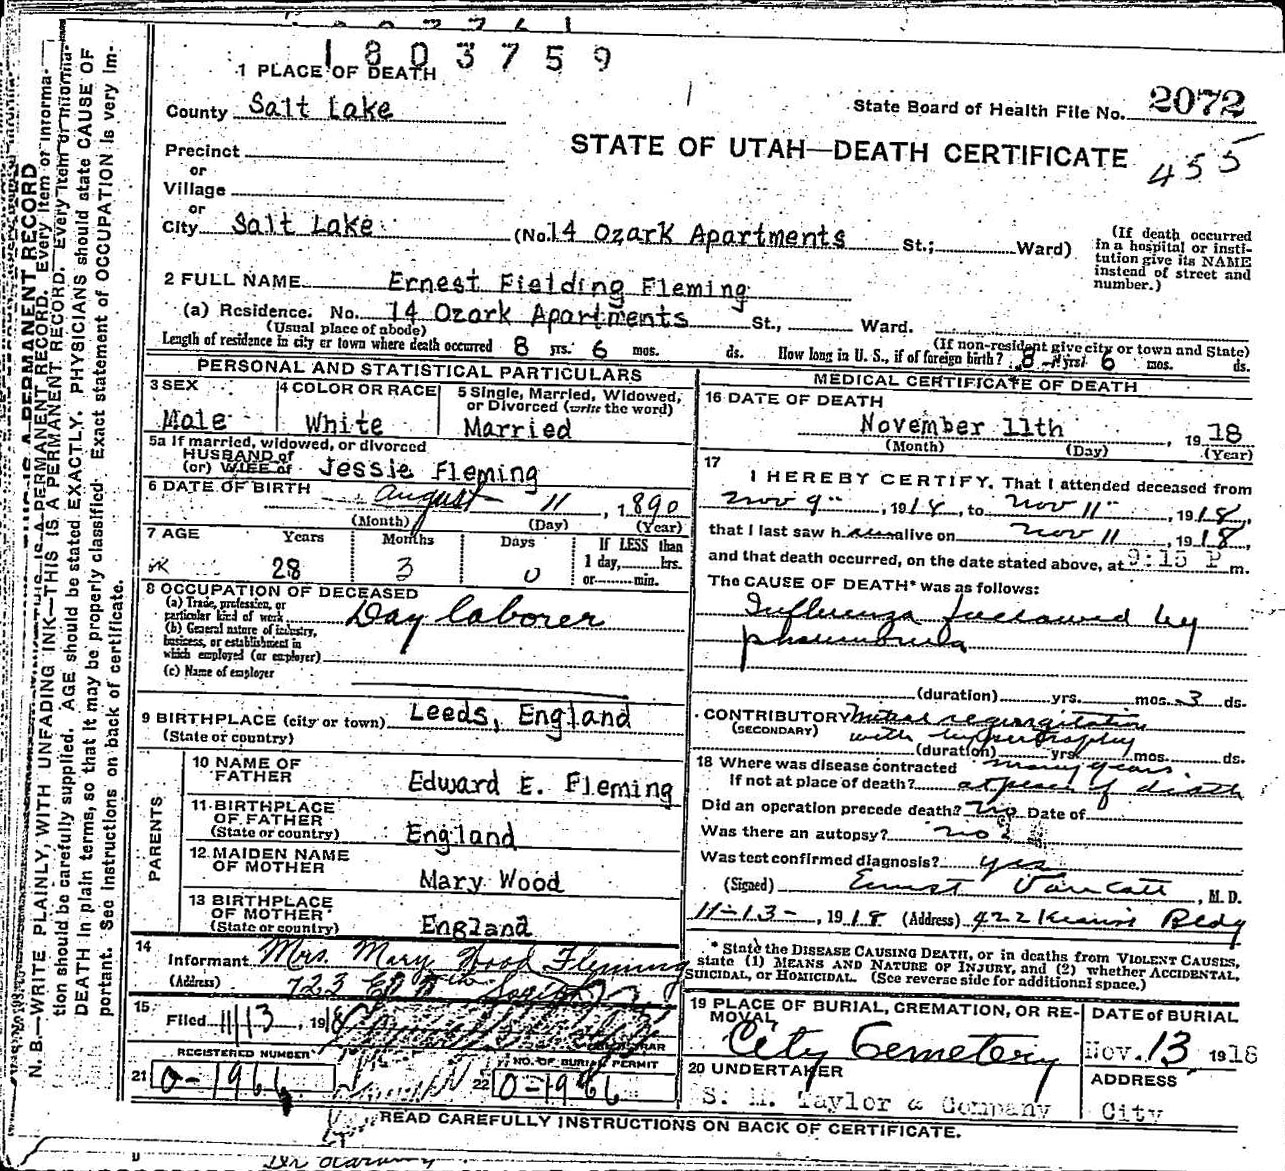 1803759
1 PLACE OF DEATH
County Salt Lake
State Board of Health File No. 2072
Precinct
or
Village
or
City Salt Lake (No. 14 Ozark Apartments St.; Ward)
STATE OF UTAH—DEATH CERTIFICATE
455
(If death occurred
in a hospital or insti-
tution give its NAME
instead of street and
number.)
2 FULL NAME Ernest Fielding Fleming
(a) Residence. No. 14 Ozark Apartments St., Ward.
(Usual place of abode) (If non-resident give city or town and State)
Length of residence in city or town where death occurred 8 yrs. 6 mos. ds. How long in U. S., if of foreign birth? 8 yrs. 6 mos. ds.
PERSONAL AND STATISTICAL PARTICULARS
3 SEX
Male
4 COLOR OR RACE
White
5 Single, Married, Widowed,
or Divorced (write the word)
Married
5a If married, widowed, or divorced
HUSBAND of
(or) WIFE of Jessie Fleming
6 DATE OF BIRTH August 11, 1890
(Month) (Day) (Year)
7 AGE Years Months Days If LESS than
1 day, hrs.
or min.
28 3 0
8 OCCUPATION OF DECEASED
(a) Trade, profession, or
particular kind of work Day laborer
(b) General nature of industry,
business, or establishment in
which employed (or employer)
(c) Name of employer
9 BIRTHPLACE (city or town) Leeds, England
(State or country)
PARENTS
10 NAME OF
FATHER Edward E. Fleming
11 BIRTHPLACE
OF FATHER
(State or country) England
12 MAIDEN NAME
OF MOTHER Mary Wood
13 BIRTHPLACE
OF MOTHER
(State or country) England
14
Informant Mrs. Mary Wood Fleming
(Address) 723 E
15
Filed 11/13, 1918
REGISTRAR
REGISTERED NUMBER
21 0-1966
NO. OF BURIAL PERMIT
22 0-1966
MEDICAL CERTIFICATE OF DEATH
16 DATE OF DEATH
November 11th, 1918
(Month) (Day) (Year)
17
I HEREBY CERTIFY, That I attended deceased from
Nov 9", 1918, to Nov 11", 1918,
that I last saw h alive on Nov 11, 1918,
and that death occurred, on the date stated above, at 9:15 P m.
The CAUSE OF DEATH* was as follows:
Influenza followed by
pneumonia
(duration) yrs. mos. 3 ds.
CONTRIBUTORY Mitral regurgitation
(SECONDARY) with hypertrophy
(duration) yrs. mos. ds.
many years.
18 Where was disease contracted
If not at place of death? at place of death
Did an operation precede death? no Date of
Was there an autopsy? no
Was test confirmed diagnosis? yes
(Signed) Ernest Van Cott, M. D.
11-13-, 1918 (Address) 422 Kearns Bldg
* State the DISEASE CAUSING DEATH, or in deaths from VIOLENT CAUSES,
state (1) MEANS AND NATURE OF INJURY, and (2) whether ACCIDENTAL,
SUICIDAL, or HOMICIDAL. (See reverse side for additional space.)
19 PLACE OF BURIAL, CREMATION, OR RE-
MOVAL
City Cemetery
DATE of BURIAL
Nov. 13 1918
20 UNDERTAKER
S. M. Taylor & Company
ADDRESS
City
READ CAREFULLY INSTRUCTIONS ON BACK OF CERTIFICATE.
N. B.—WRITE PLAINLY, WITH UNFADING INK—THIS IS A PERMANENT RECORD. Every item of informa-
tion should be carefully supplied. AGE should be stated EXACTLY. PHYSICIANS should state CAUSE OF
DEATH in plain terms, so that it may be properly classified. Exact statement of OCCUPATION is very im-
portant. See instructions on back of certificate.